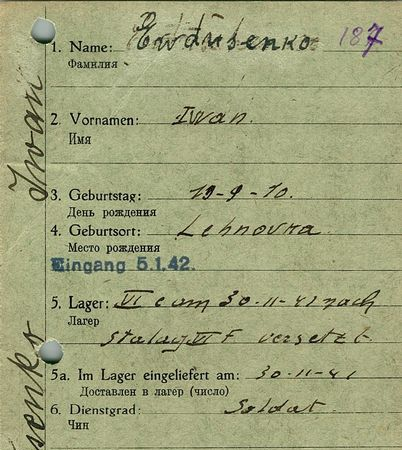 1. Name: Ewdusenko 187
Фамилия
2. Vornamen: Iwan.
Имя
3. Geburtstag: 19-9-10.
День рождения
4. Geburtsort: Lehnovka
Место рождения
Eingang 5.1.42.
5. Lager: VI C am 30-11-41 nach
Лагерь
Stalag VI F versetzt
5a. Im Lager eingeliefert am: 30-11-41
Доставлен в лагерь (число)
6. Dienstgrad: Soldat
Чин
Iwan
senko